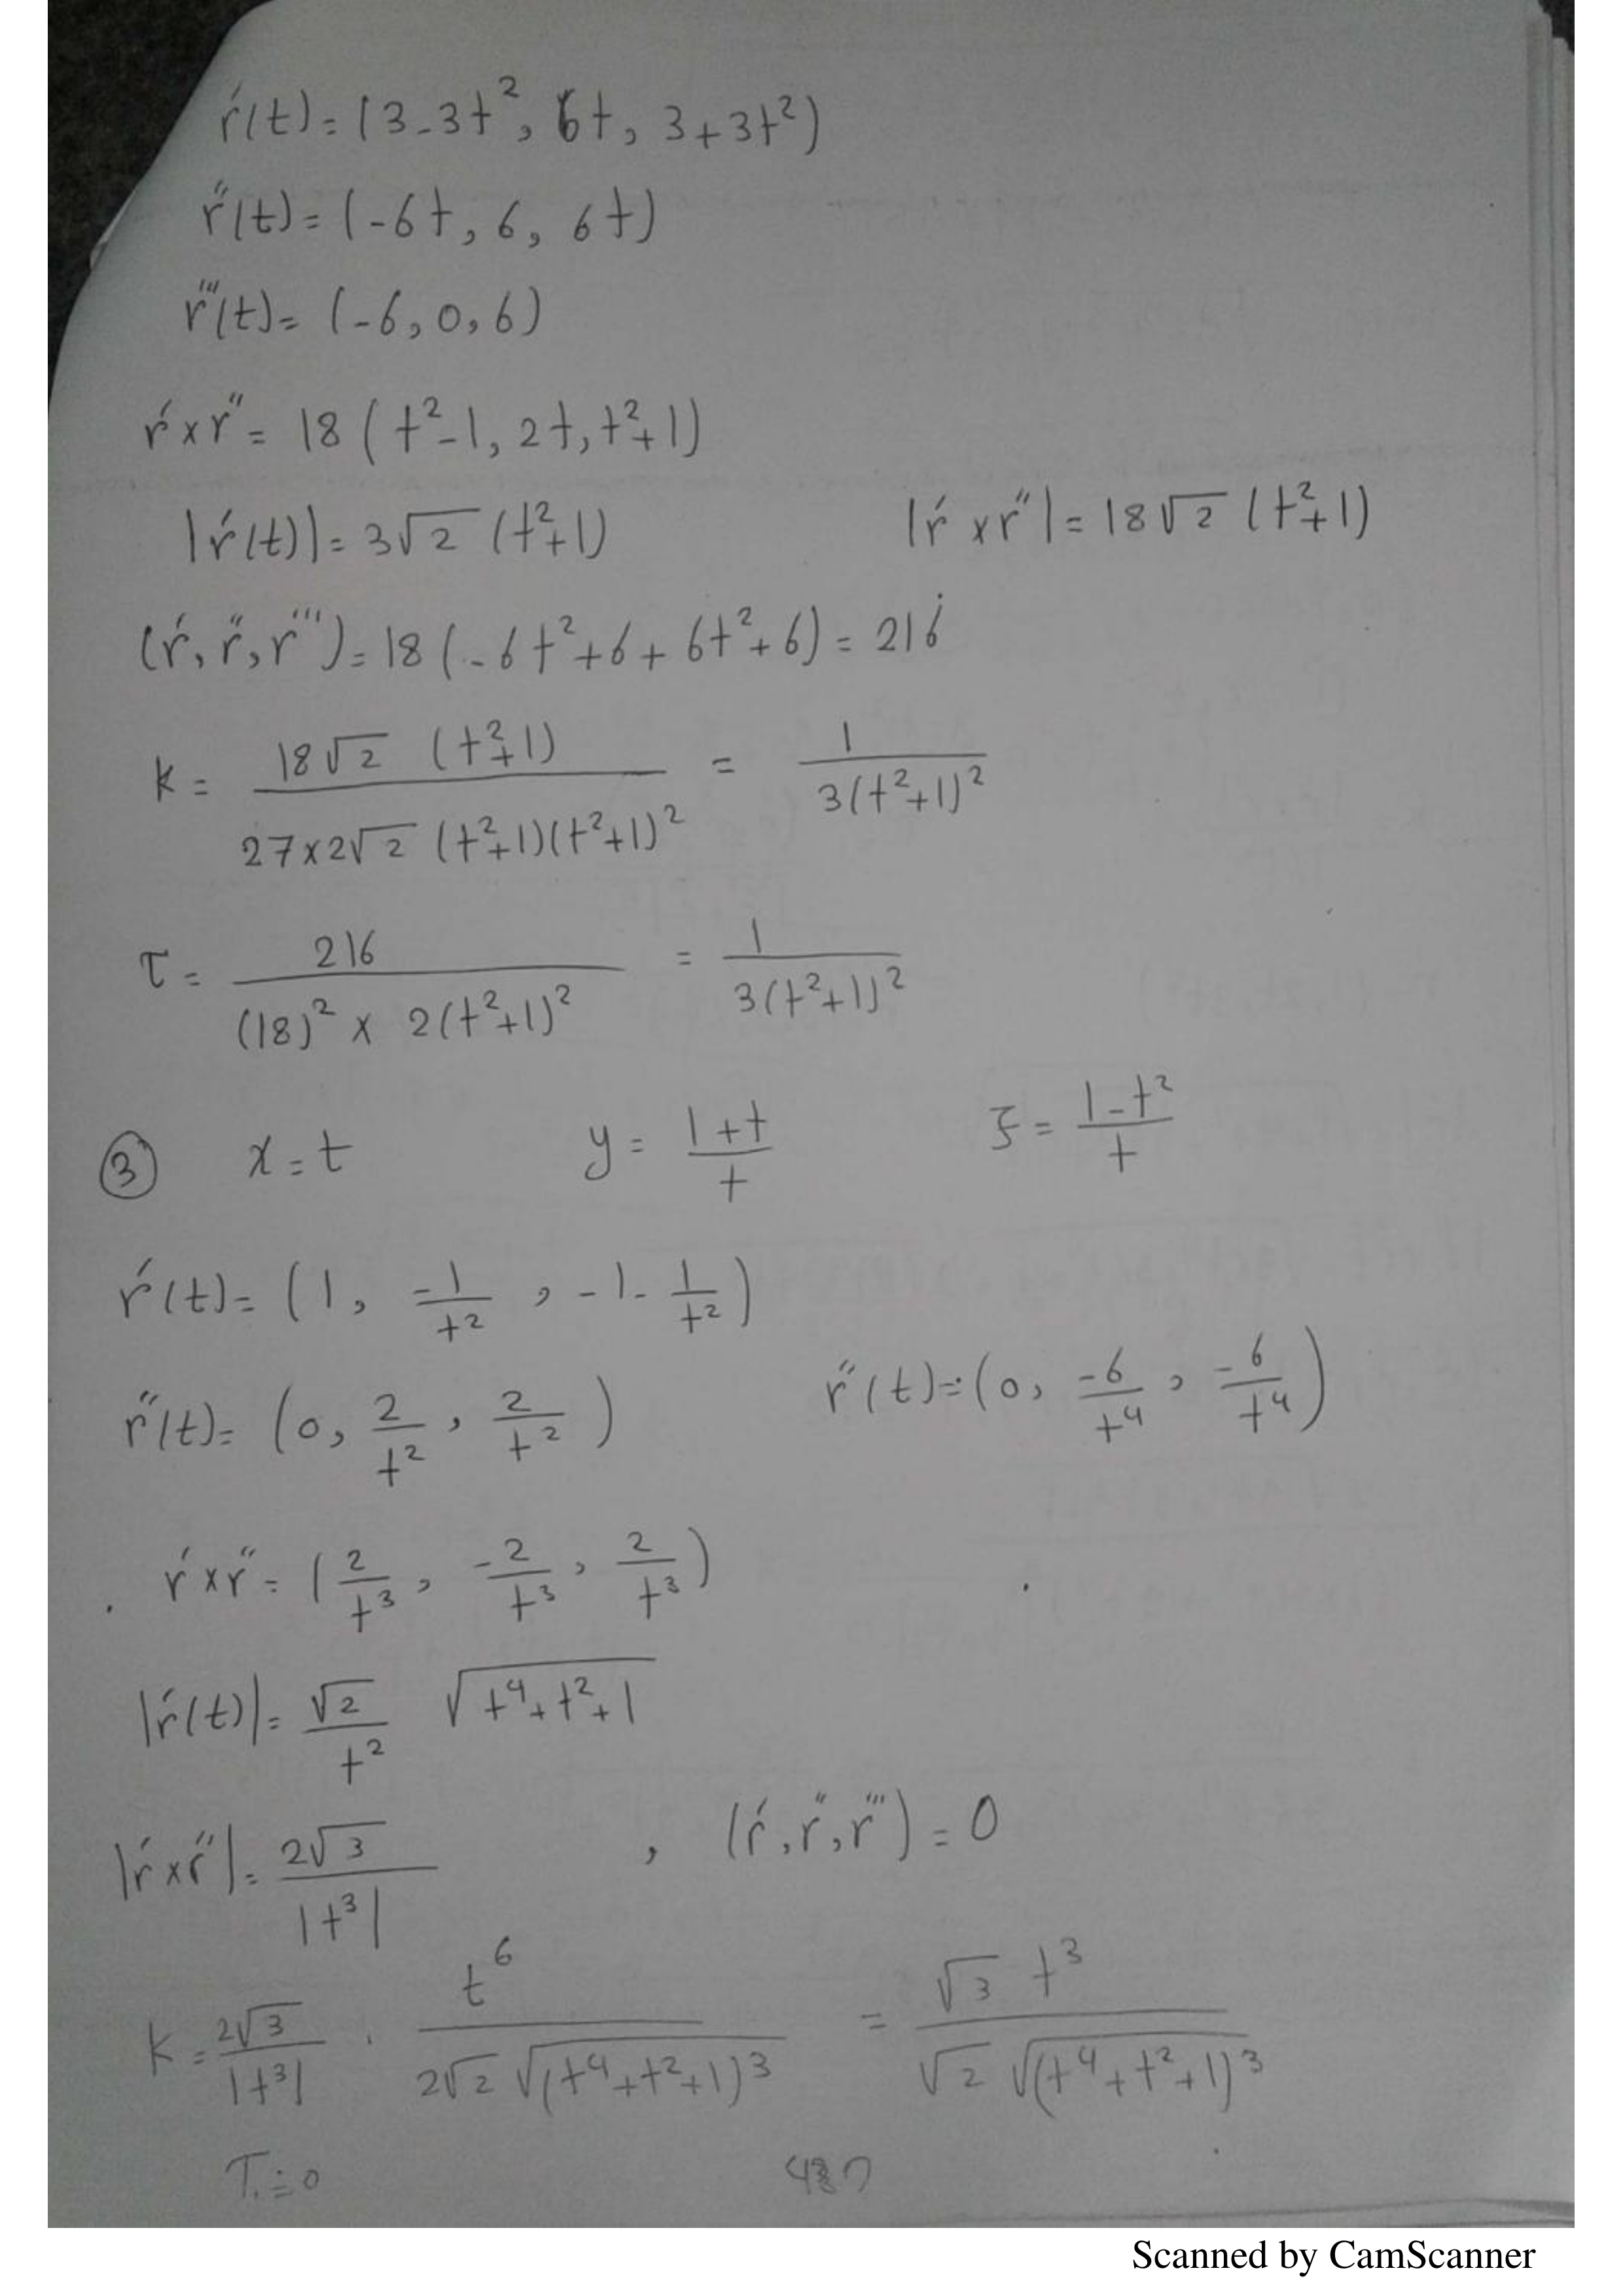 r'(t) = (3-3t², 6t, 3+3t²)
r''(t) = (-6t, 6, 6t)
r'''(t) = (-6, 0, 6)
r' × r'' = 18 (t²-1, 2t, t²+1)
|r'(t)| = 3√2 (t²+1)    |r' × r''| = 18√2 (t²+1)
(r', r'', r''') = 18 (-6t²+6+6t²+6) = 216
k = 18√2 (t²+1) / 27×2√2 (t²+1)(t²+1)² = 1 / 3(t²+1)²
τ = 216 / (18)² × 2(t²+1)² = 1 / 3(t²+1)²
③ x = t    y = 1+t / t    z = 1-t² / t
r'(t) = (1, -1/t², -1-1/t²)
r''(t) = (0, 2/t², 2/t²)    r''(t) = (0, -6/t⁴, -6/t⁴)
r' × r'' = (2/t³, -2/t³, 2/t³)
|r'(t)| = √2/t² √(t⁴+t²+1)
|r' × r''| = 2√3 / |t³| , (r', r'', r''') = 0
k = 2√3/|t³| · t⁶ / 2√2 √(t⁴+t²+1)³ = √3 t³ / √2 √(t⁴+t²+1)³
τ = 0
Scanned by CamScanner